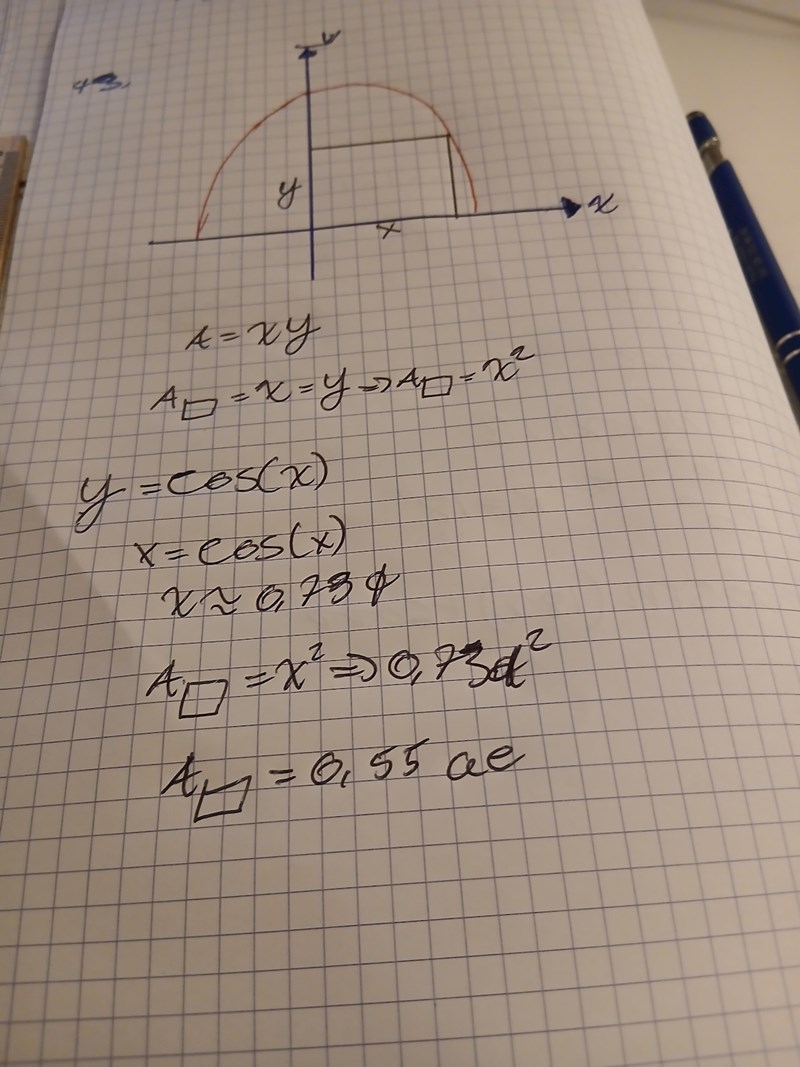 43.
y
y
x
x
A = xy
A▭ = x = y => A▭ = x²
y = cos(x)
x = cos(x)
x ≈ 0,739
A▭ = x² => 0,739²
A▭ = 0,55 ae